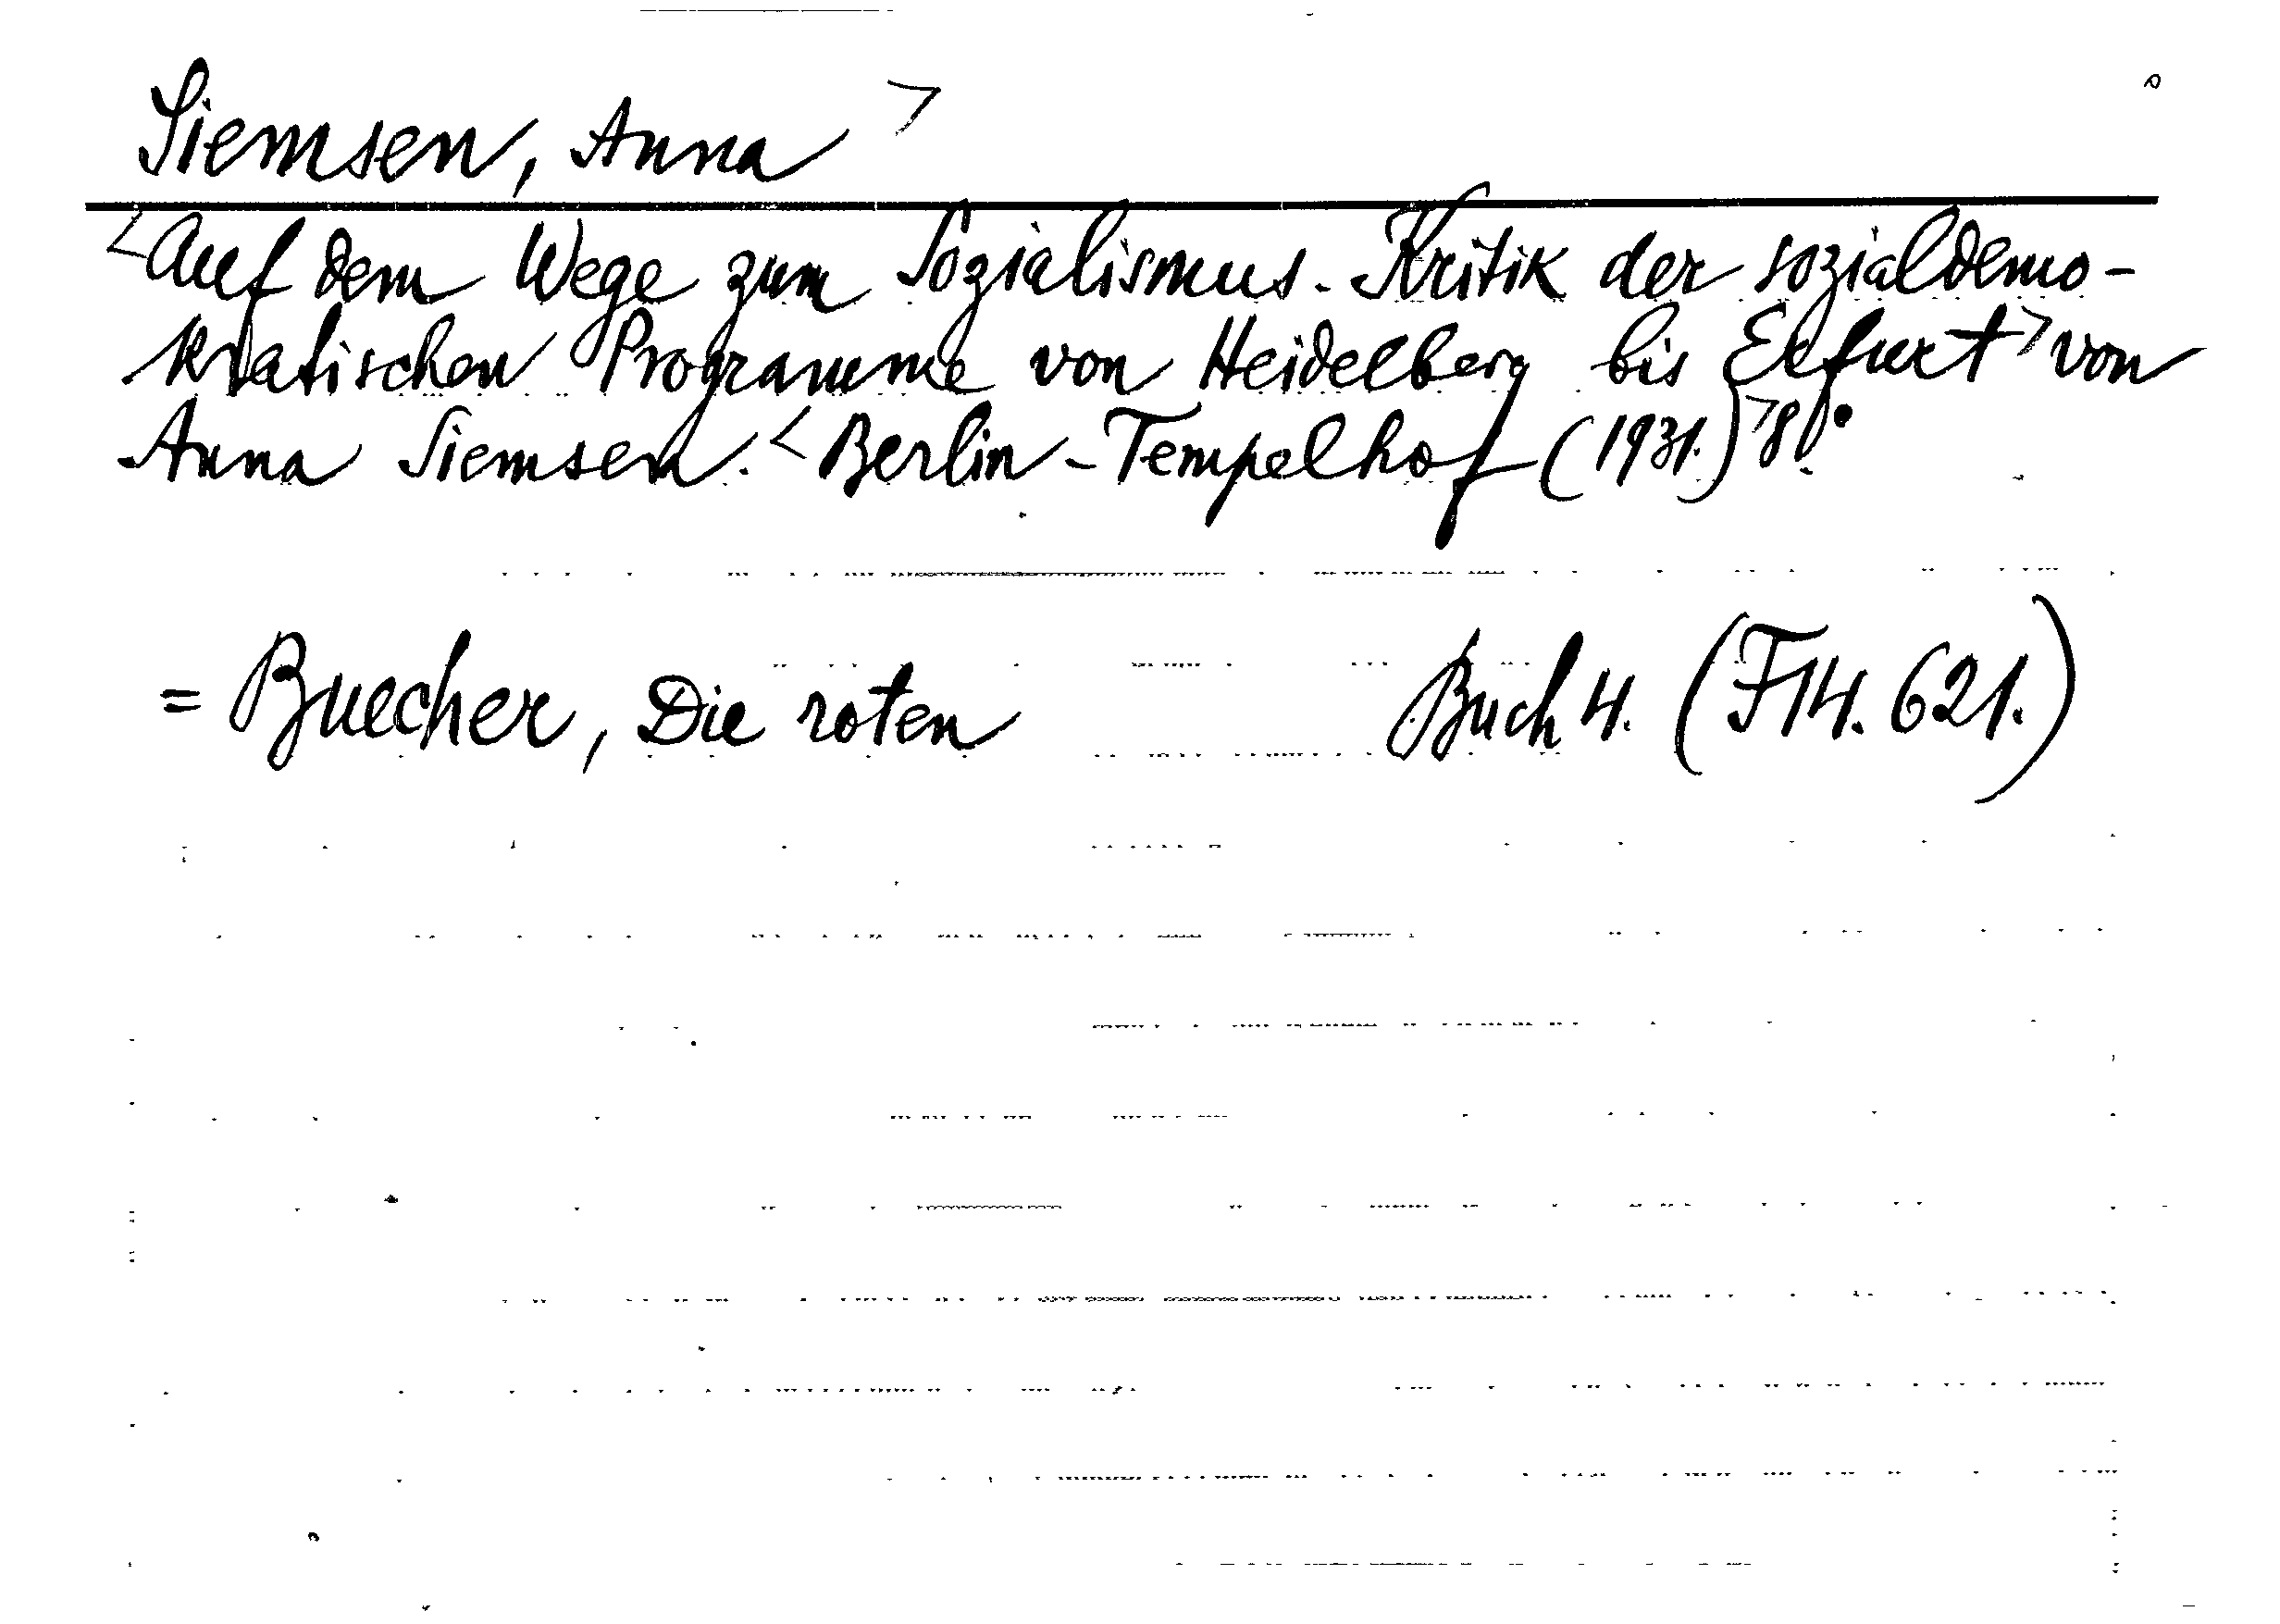 Siemsen, Anna >
<Auf dem Wege zum Sozialismus. Kritik der sozialdemo-
kratischen Programme von Heidelberg bis Erfurt> von
Anna Siemsen. <Berlin-Tempelhof (1931.)> 8°.
= Buecher, Die roten Buch 4. (F14. 621.)